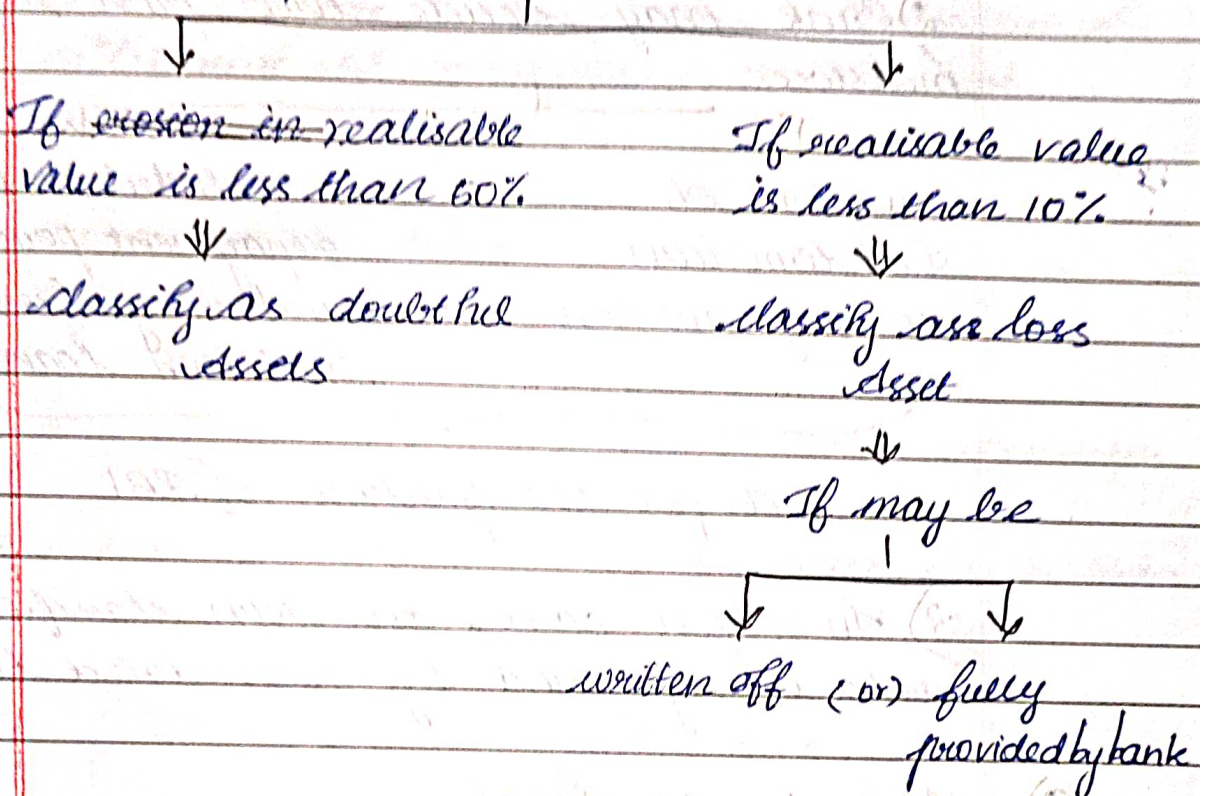 If erosion in realisable
value is less than 60%
classify as doubtful
Assets
If realisable value
is less than 10%
classify as loss
Asset
If may be
written off (or) fully
provided by bank